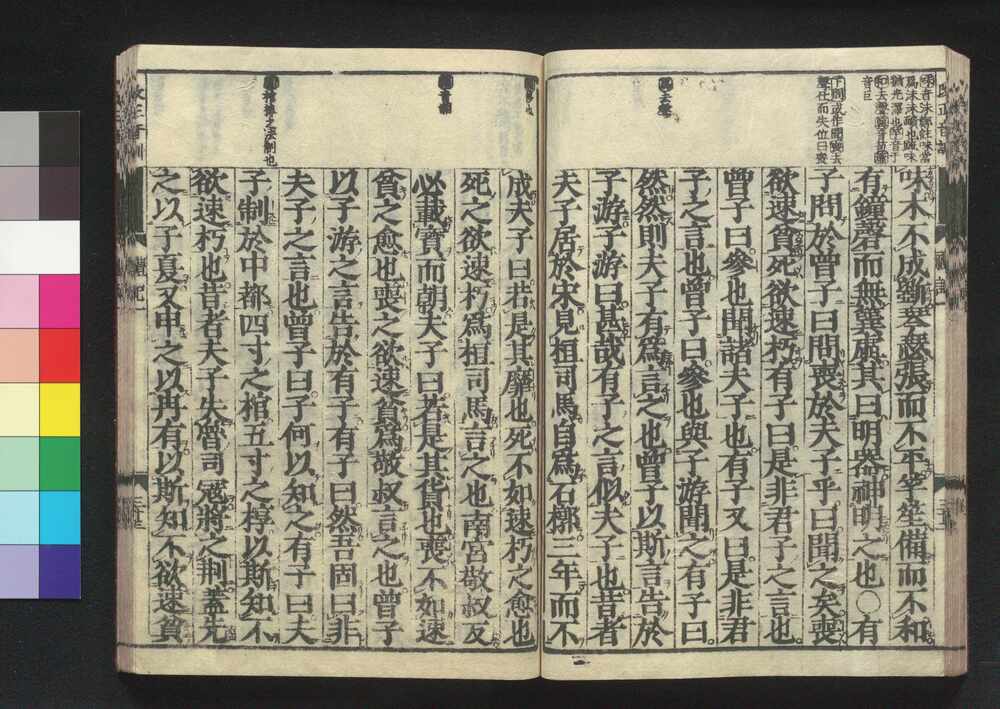 味木不成斲琴瑟張而不平竽笙備而不和
有鐘磬而無簨虡其曰明器神明之也○有
子問於曾子曰問喪於夫子乎曰聞之矣喪
欲速貧死欲速朽有子曰是非君子之言也
曾子曰參也聞諸夫子也有子又曰是非君
子之言也曾子曰參也與子游聞之有子曰
然然則夫子有爲言之也曾子以斯言告於
子游子游曰甚哉有子之言似夫子也昔者
夫子居於宋見桓司馬自爲石槨三年而不
成夫子曰若是其靡也死不如速朽之愈也
死之欲速朽爲桓司馬言之也南宮敬叔反
必載寳而朝夫子曰若是其貨也喪不如速
貧之愈也喪之欲速貧爲敬叔言之也曾子
以子游之言告於有子有子曰然吾固曰非
夫子之言也曾子曰子何以知之有子曰夫
子制於中都四寸之棺五寸之椁以斯知不
欲速朽也昔者夫子失魯司寇將之荆蓋先
之以子夏又申之以冉有以斯知不欲速貧